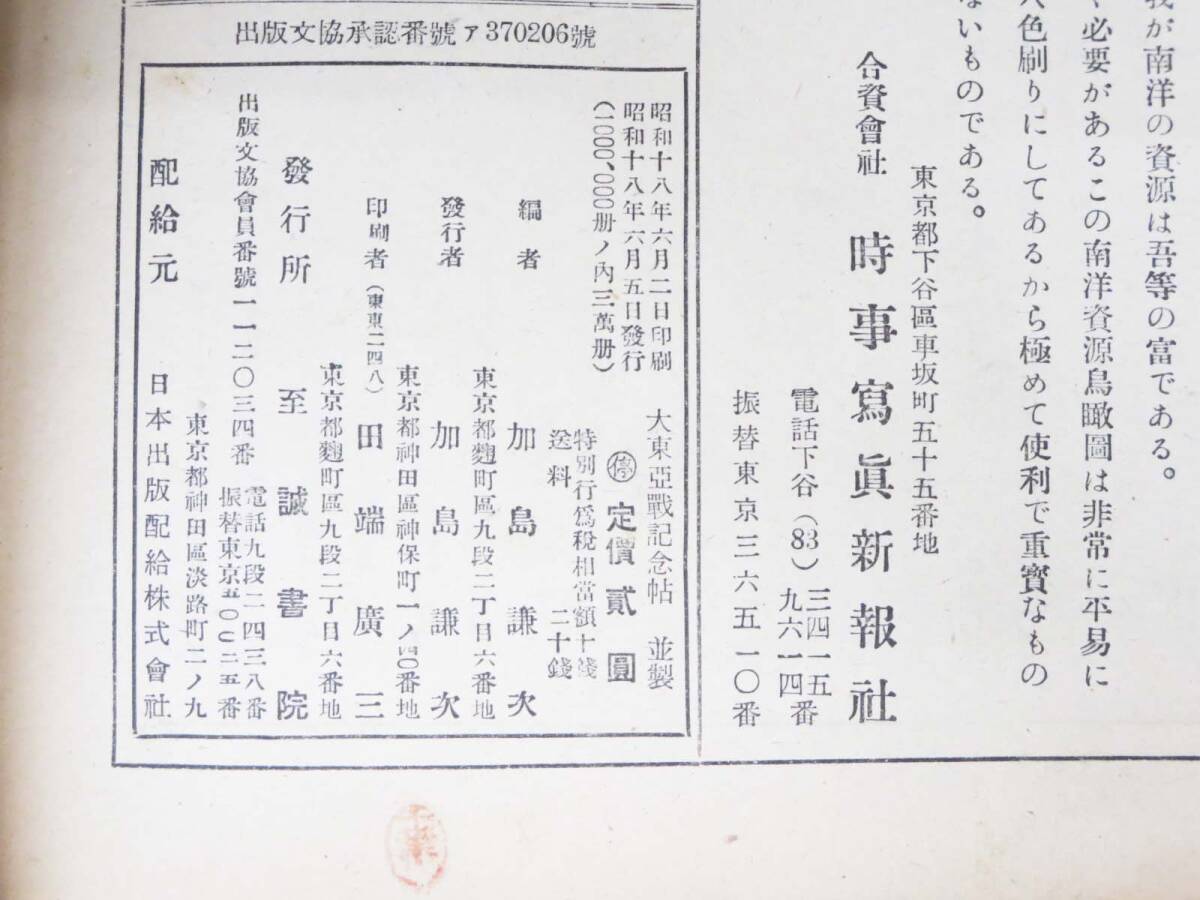 我が南洋の資源は吾等の富である。
必要があるこの南洋資源鳥瞰圖は非常に平易に
色刷りにしてあるから極めて使利で重寳なもの
ないものである。
東京都下谷區車坂町五十五番地
合資會社 時事寫眞新報社
電話下谷（83） 三四一五 九六一四番
振替東京三六五一〇番
出版文協承認番號ァ370206號
昭和十八年六月二日印刷 大東亞戰記念帖 並製
昭和十八年六月五日發行
（二〇〇〇、〇〇〇册ノ內三萬册） 停 定價貳圓
特別行爲稅相當額十錢
送料 二十錢
編者 加島謙次
東京都麴町區九段二丁目六番地
發行者 加島謙次
東京都神田區神保町一ノ四〇番地
印刷者（東東二四八） 田端廣三
東京都麴町區九段二丁目六番地
發行所 至誠書院
出版文協會員番號一一二〇三四番 電話九段二四三八番
振替東京五〇〇二五番
東京都神田區淡路町二ノ九
配給元 日本出版配給株式會社